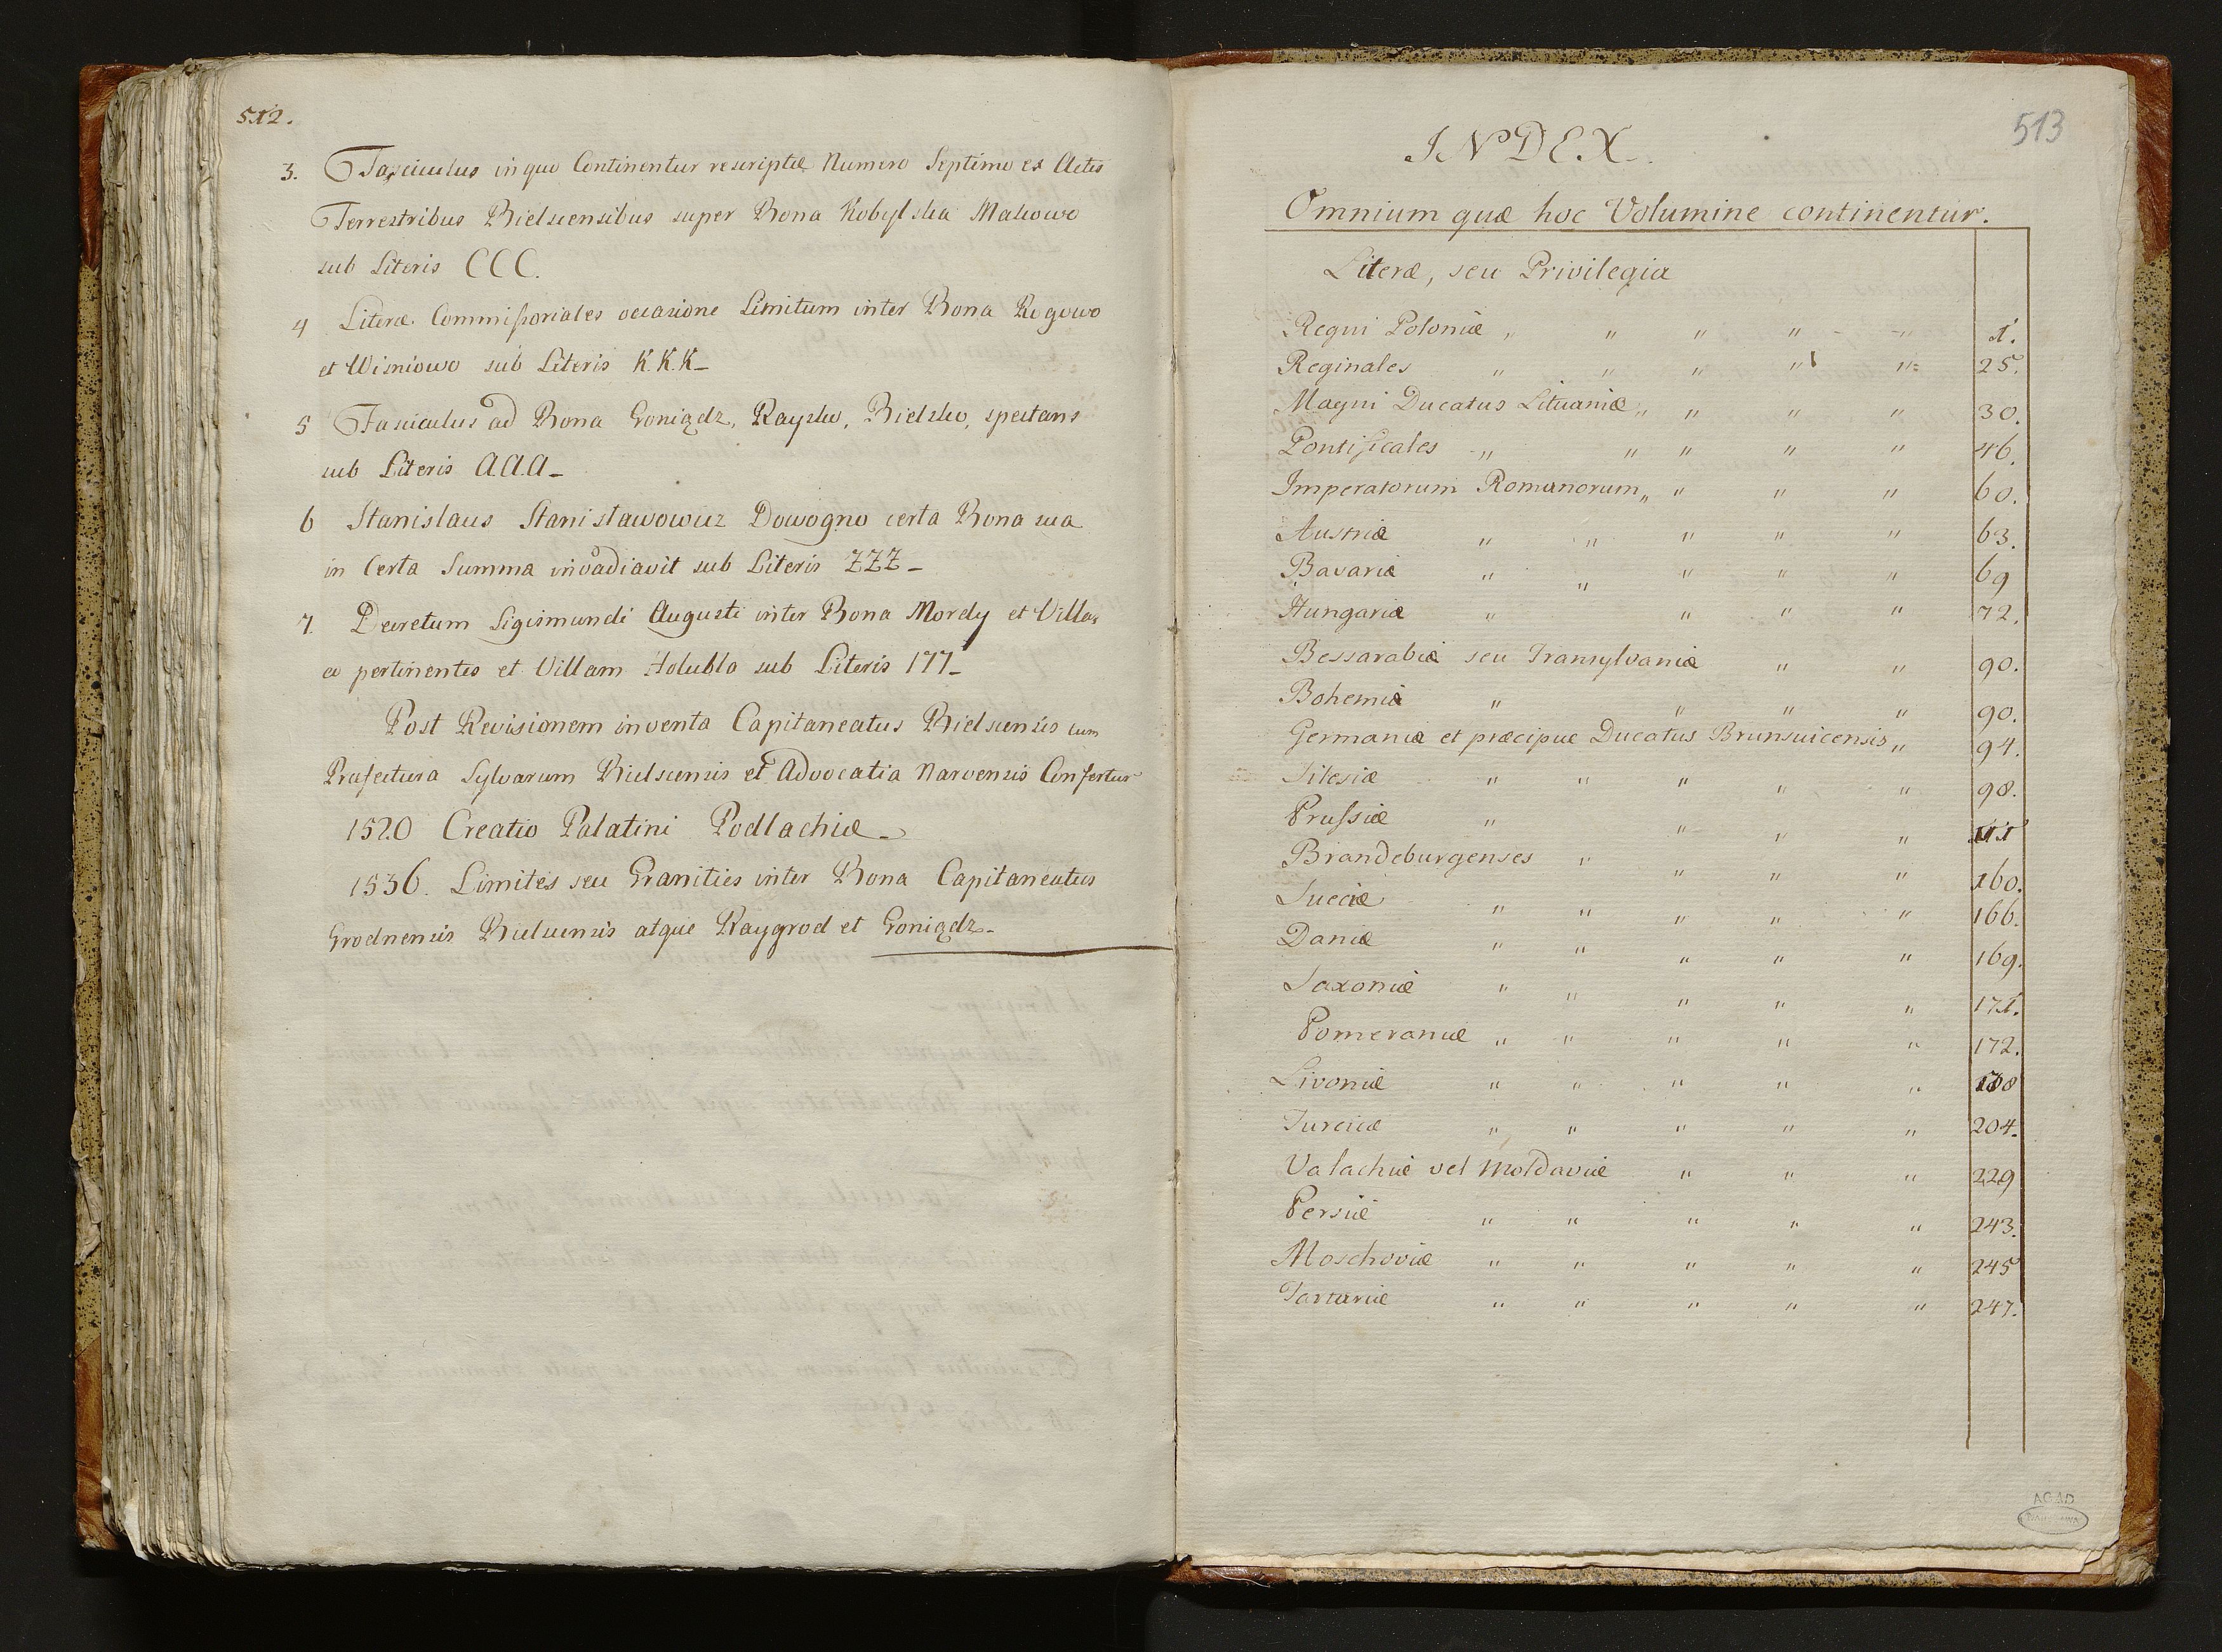 512.
3. Fasciculus in quo Continentur rescriptæ Numero Septimo ex Actis
Terrestribus Bielscensibus super Bona Kobylska Makowo
sub Literis CCC.
4 Literæ Commissoriales occasione Limitum inter Bona Rogowo
et Wisniowo sub Literis K.K.K_
5 Fasciculus ad Bona Goniądz, Raysko, Bielsko, spectans
sub Literis A.A.A_
6 Stanislaus Stanisławowicz Dowogno certa Bona sua
in Certa Summa invadiavit sub Literis ZZZ_
7. Decretum Sigismundi Augusti inter Bona Mordy et Villas
eo pertinentes et Villam Holubla sub Literis 177_
Post Revisionem inventa Capitaneatus Bielscensis cum
Præfectura Sylvarum Bielscensis et Advocatia Narvensis Confertur
1520 Creatio Palatini Podlachiæ_
1536. Limites seu Granities inter Bona Capitaneatus
Grodnensis Bielscensis atque Raygrod et Goniądz_
513
INDEX.
Omnium quæ hoc Volumine continentur.
Literæ, seu Privilegia
Regni Poloniæ " " " " " 1.
Reginales " " " " " 25.
Magni Ducatus Lituaniæ " " " " 30.
Pontificales " " " " " 46.
Imperatorum Romanorum " " " " 60.
Austriæ " " " " " 63.
Bavariæ " " " " " 69
Hungariæ " " " " 72.
Bessarabiæ seu Transylvaniæ " " 90.
Bohemiæ " " " " 90.
Germaniæ et præcipue Ducatus Brunsuicensis " 94.
Silesiæ " " " " " 98.
Prussiæ " " " " 111
Brandeburgenses " " " " 160.
Sueciæ " " " " " 166.
Daniæ " " " " " 169.
Saxoniæ " " " " " 171.
Pomeraniæ " " " " " 172.
Livoniæ " " " " "
Turciæ " " " " " 204.
Valachiæ vel Moldaviæ " " " 229
Persiæ " " " " " 243.
Moschoviæ " " " " " 245
Tartariæ " " " " " 247.
AGAD
WARSZAWA